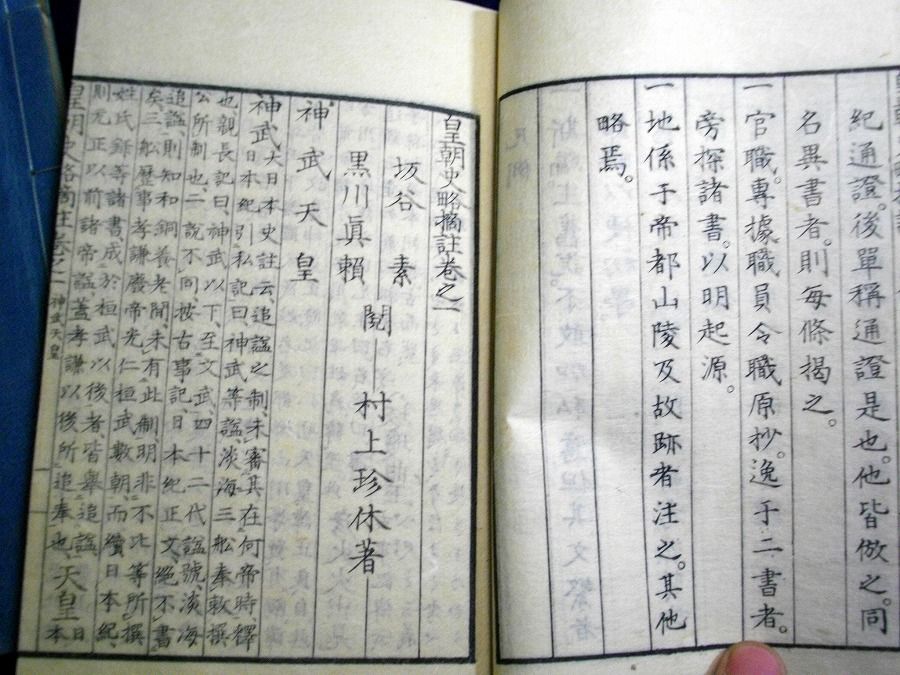 紀通證。後單稱通證是也。他皆倣之。同
名異書者。則每條揭之。
一官職。專據職員令職原抄。逸于二書者。
旁探諸書。以明起源。
一地係于帝都山陵及故跡者注之。其他
略焉。
皇朝史略摘註卷之一
坂谷素
黒川眞賴 閲
村上珍休著
神武天皇
神武 大日本史註云、追謚之制、未審其在何帝時、釋
日本紀、引私記曰、神武等謚、淡海三舩奉敕撰
也、親長記曰、神武以下、至文武、四十二代謚號、淡海
公所制也、二說不同、按古事記、日本紀正文、絕不書
追謚、則知和銅養老間、未有此制、明非不比等所撰
矣、三舩歷事孝謙廢帝光仁桓武數朝、而續日本紀、
姓氏錄等諸書、成於桓武以後者、皆舉追謚、
則元正以前諸帝謚、蓋孝謙以後所追奉也、天皇 日本
皇朝史略摘註卷之一 神武天皇